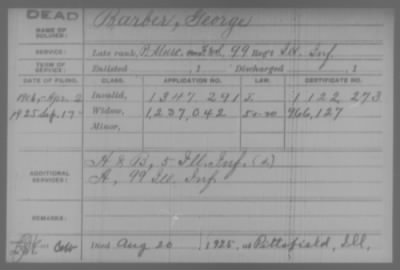 DEAD
NAME OF SOLDIER: Barber, George
SERVICE: Late rank, P. Musc. 99 Reg't Ill. Inf.
TERM OF SERVICE: Enlisted , 1 Discharged , 1
DATE OF FILING. CLASS. APPLICATION NO. LAW. CERTIFICATE NO.
Apr. 2 Invalid, 1347 291 1 122 273
1925 Sep. 17 Widow, 1,237,042 966,127
Minor,
ADDITIONAL SERVICES: H & B, 5 Ill. Inf.
A, 99 Ill. Inf
REMARKS:
Died Aug 20 1925, at Pittsfield, Ill.